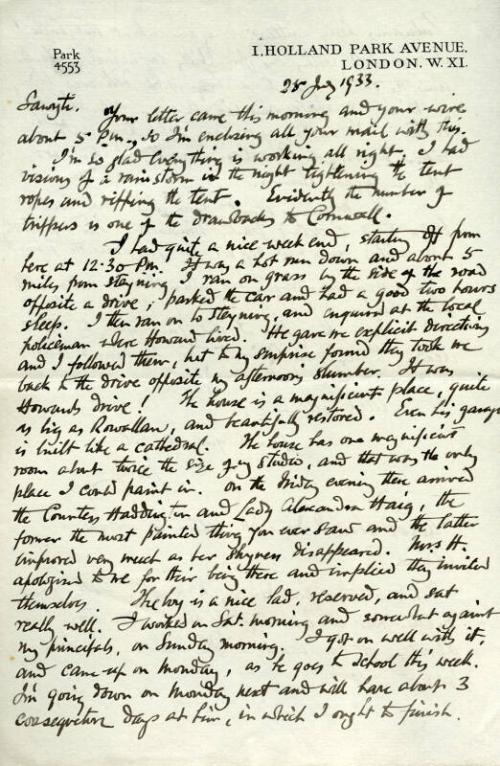 Park
4553
1. HOLLAND PARK AVENUE.
LONDON. W. XI.
25 July 1933.
Your letter came this morning and your wire
about 5 P.m., so I'm enclosing all your mail with this.
I'm so glad everything is working all right. I had
visions of a rainstorm in the night tightening the tent
ropes and ripping the tent. Evidently the number of
trippers is one of the drawbacks to Cornwall.
I had quite a nice week end, starting off from
here at 12.30 P.m. It was a hot run down and about 5
miles from Steyning I ran on grass by the side of the road
opposite a drive, parked the car and had a good two hours
sleep. I then ran on to Steyning, and enquired at the local
policeman where Howard lived. He gave me explicit directions
and I followed them, but to my surprise found they took me
back to the drive opposite my afternoon's slumber. It was
Howards drive! The house is a magnificent place, quite
as big as Rowallan, and beautifully restored. Even his garage
is built like a cathedral. The house has one magnificent
room about twice the size of my studio, and that was the only
place I could paint in. On the Friday evening there arrived
the Countess Haddington and Lady Alexandra Haig, the
former the most painted thing you ever saw and the latter
improved very much as her shyness disappeared. Mrs H.
apologised to me for their being there and implied they invited
themselves. The boy is a nice lad, reserved, and sat
really well. I worked on Sat. morning and somewhat against
my principals, on Sunday morning. I got on well with it,
and came up on Monday, as he goes to school this week.
I'm going down on Monday next and will have about 3
consequetive days at him, in which I ought to finish.